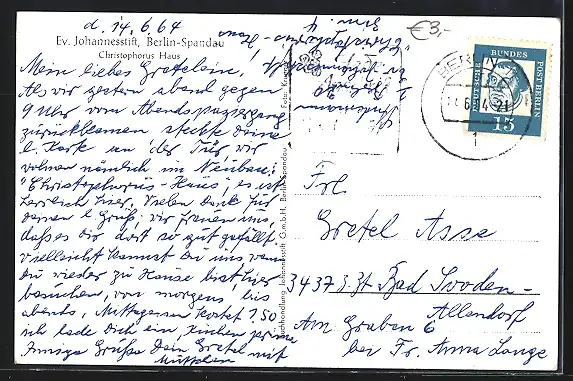 d. 14.6.64
Ev. Johannesstift, Berlin-Spandau
Christophorus Haus
Mein liebes Gretelein,
Als wir gestern abend gegen
9 Uhr vom Abendspaziergang
zurückkamen steckte Deine
l. Karte an der Tür wir
wohnen nämlich im Neubau:
"Christophorus-Haus", es ist
herrlich hier. Vielen Dank für
Deinen l. Gruß; wir freuen uns,
daß es Dir dort so gut gefällt.
Vielleicht kannst Du uns, wenn
Du wieder zu Hause bist, hier
besuchen, von morgens bis
abends, Mittagessen kostet 1,50
ich lade Dich ein,
Grüße Dein Gretel mit
Buchhandlung Johannesstift G.m.b.H. Berlin-Spandau
€3,-
BERLIN
DEUTSCHE BUNDESPOST BERLIN
15
Frl.
Gretel Asse
3437 z. Zt Bad Sooden-
Allendorf
Am Graben 6
bei Fr. Anna Lange